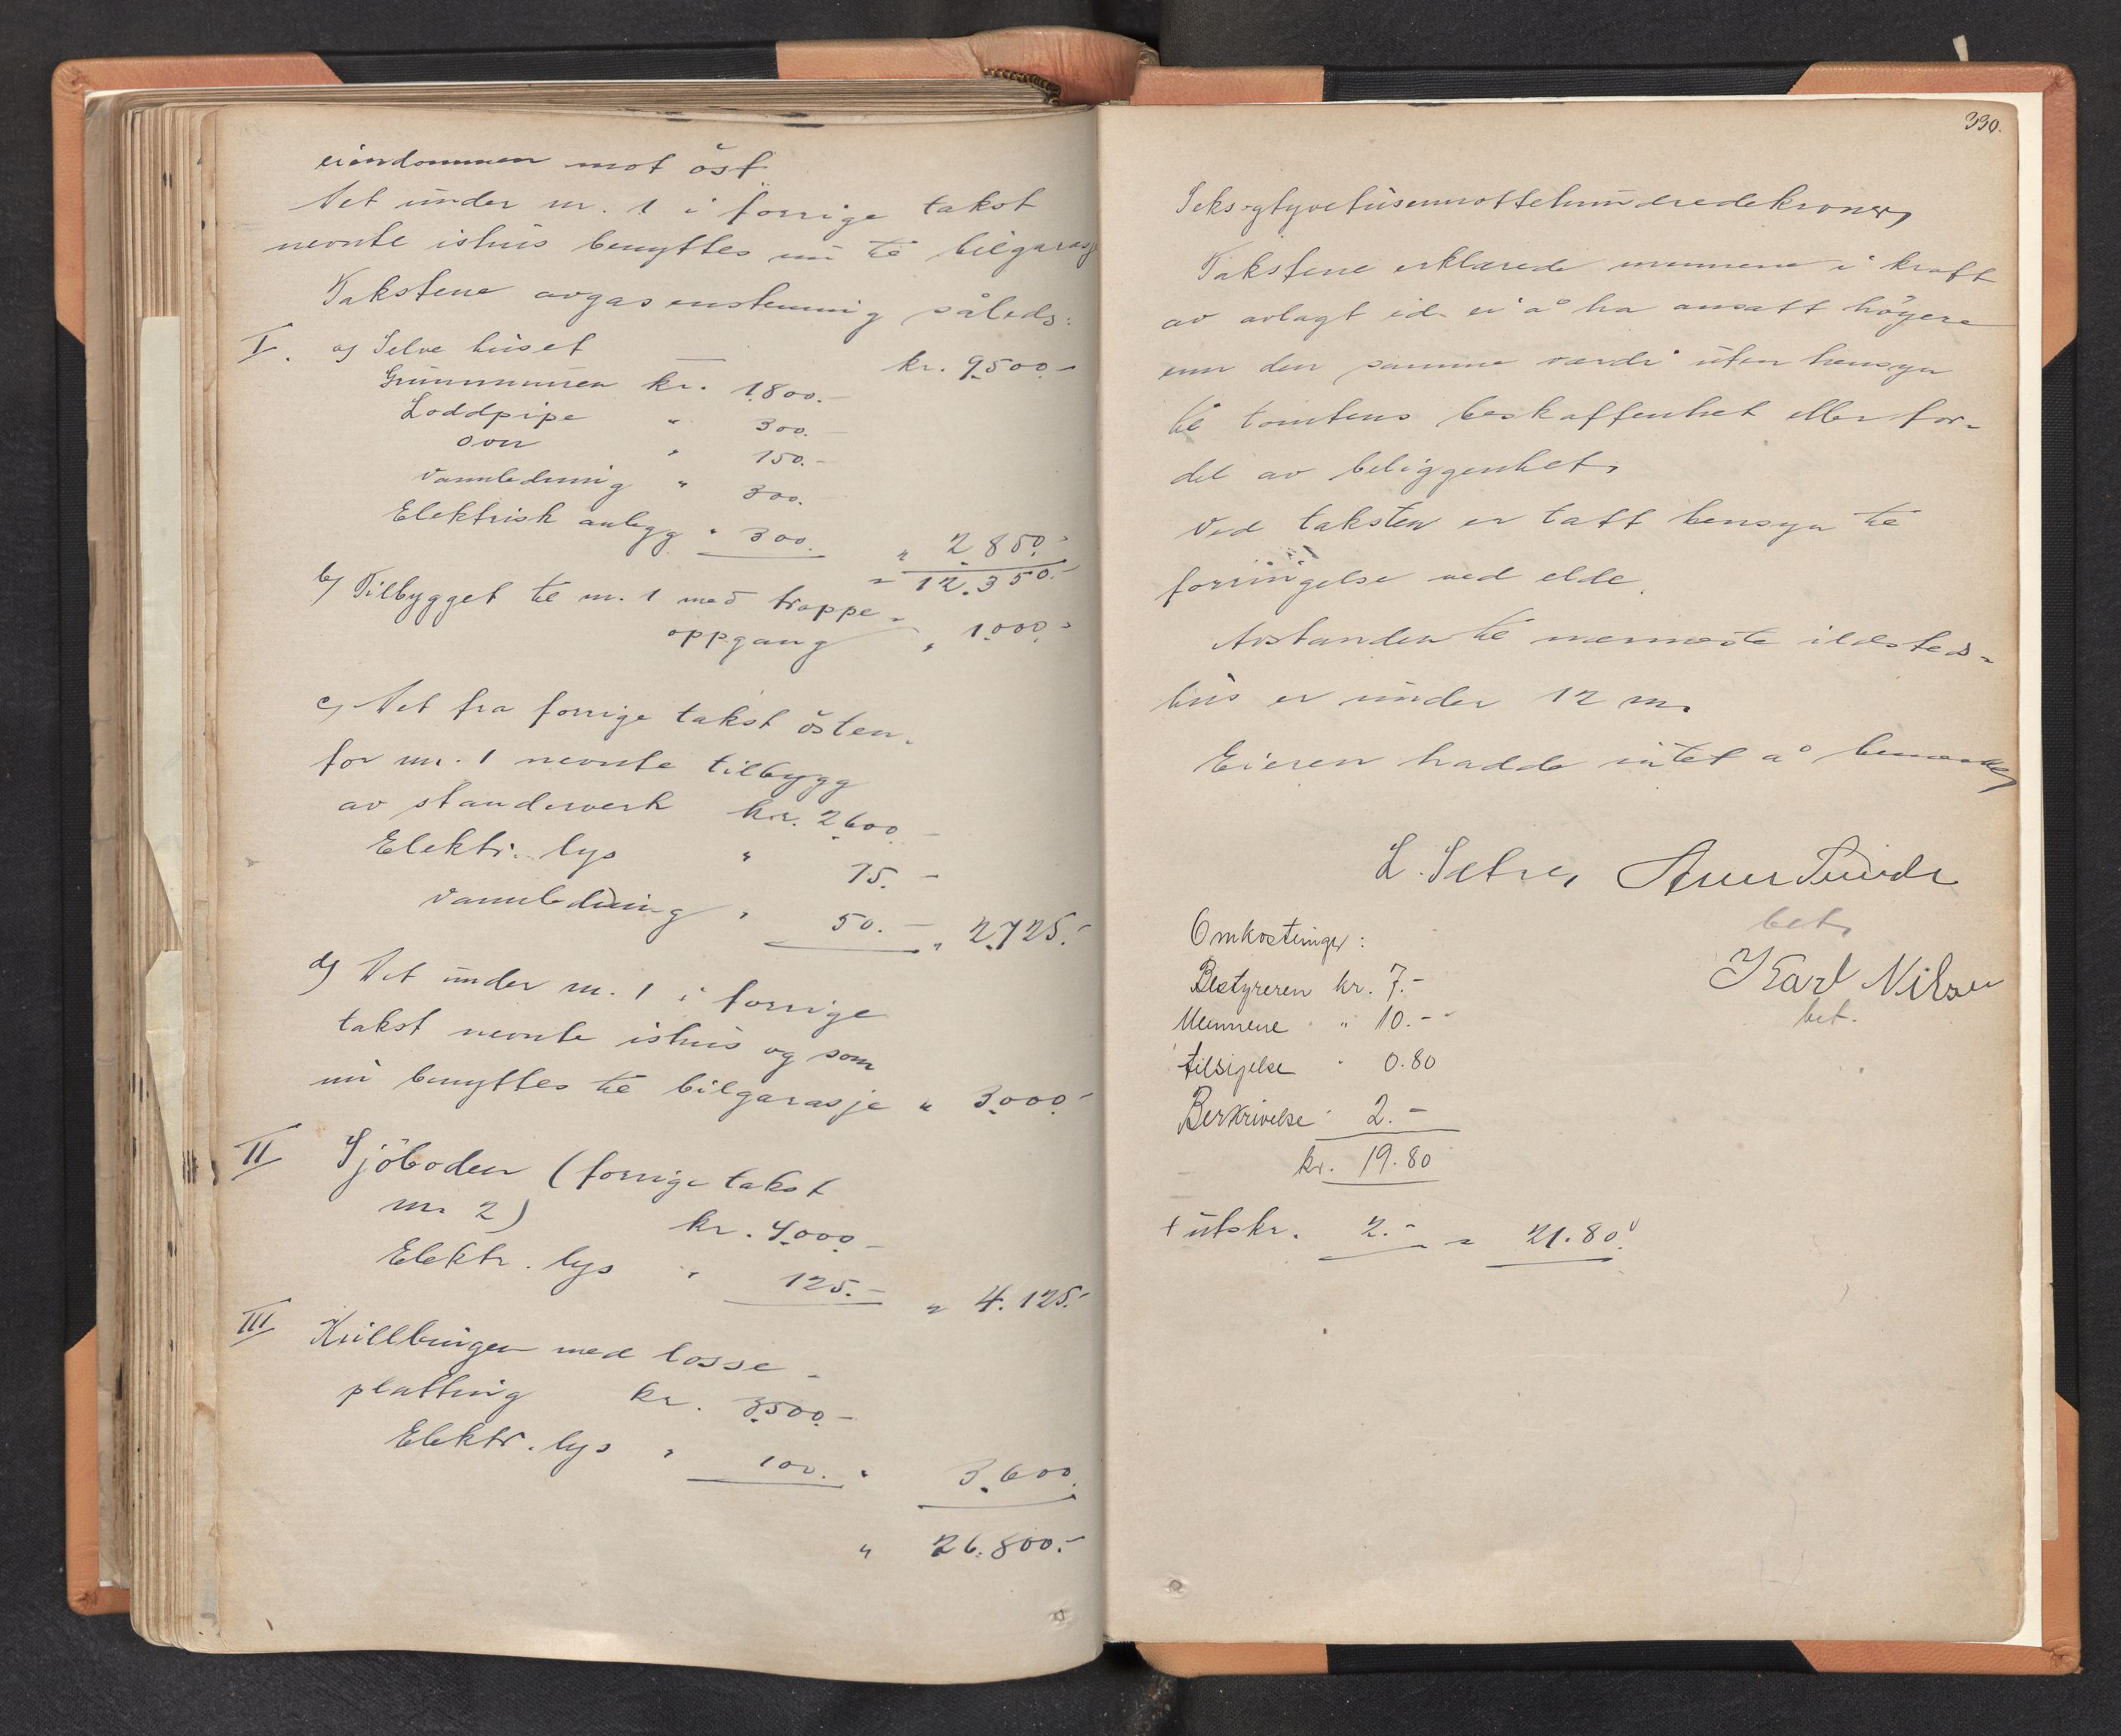 eiendommen mot öst
Det under nr. 1 i forrige takst
nevnte ishus benyttes nu til bilgarasje
Takstene avgas enstemmig således:
I. a) Selve huset kr. 9500.-
Grunnmuren kr. 1800.-
Loddpipe " 300.-
Ovn " 150.-
Vannledning " 300.
Elektrisk anlegg " 300. " 2850.-
= 12.350.-
b) Tilbygget til nr. 1 med trappe-
oppgang " 1000.-
c) Det fra forrige takst östen-
for nr. 1 nevnte tilbygg
av standerverk kr. 2600.-
Elektr. lys " 75.-
Vannledning " 50.- " 2725.-
d) Det under nr. 1 i forrige
takst nevnte ishus og som
nu benyttes til bilgarasje " 3000.-
II Sjöboden (forrige takst
nr. 2) kr. 4000.-
Elektr. lys " 125.- " 4.125.-
III Kullbingen med losse-
platting kr. 3500.-
Elektr. lys " 100. " 3.600.
" 26.800.-
330.
Seksogtyvetusenottehundredekroner,
Takstene erklærede mennene i kraft
av avlagt ed ei å ha ansatt höyere
enn den sanne verdi uten hensyn
til tomtens beskaffenhet eller for-
del av beliggenhet.
Ved taksten er tatt hensyn til
forringelse ved elde.
Avstanden til nermeste ildsteds-
hus er under 12 m.
Eieren hadde intet å bemerke,
L. Setre,
bet.
Karl Nilsen
bet.
Omkostninger:
Bestyreren kr. 7.-
Mennene " 10.-
tilsigelse " 0.80
Berkrivelse 2.-
kr. 19.80
+ utskr. 2.- = 21.80